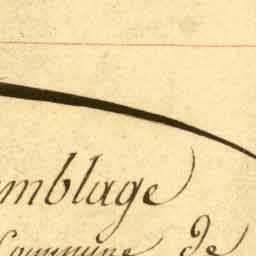 mblage
Commune de